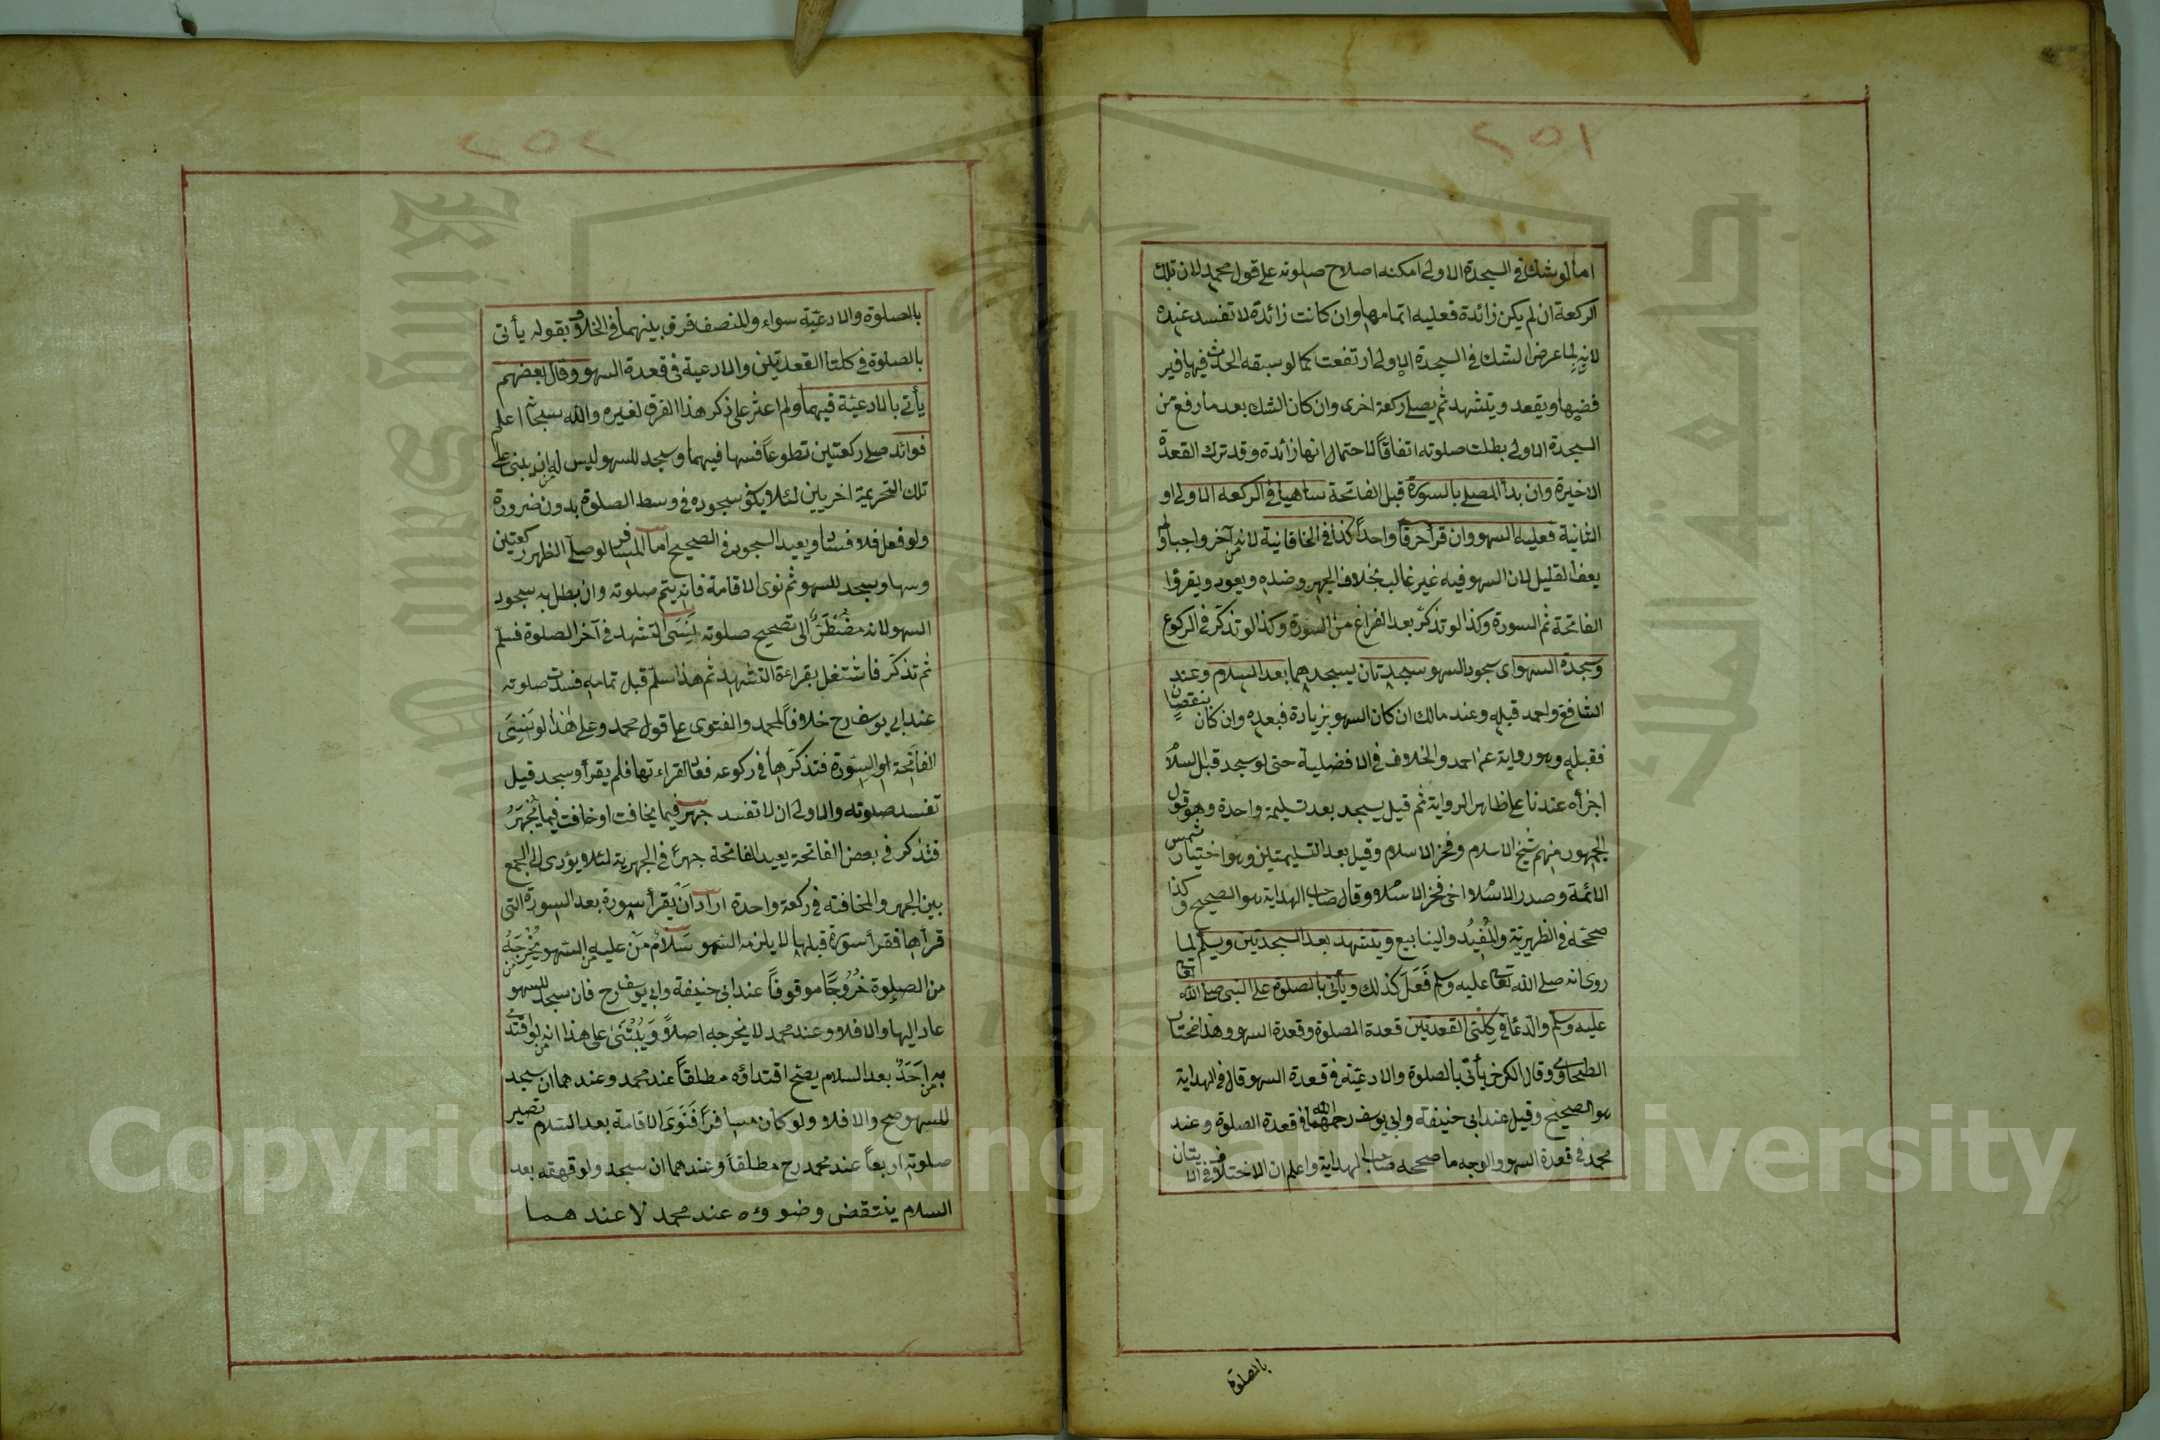 ٢٥١
اما لو شك فى السجدة الاولى امكنه اصلاح صلوته على قول محمد لان تلك
الركعة ان لم يكن زائدة فعليه اتمامها وان كانت زائدة لا تفسد عنده
لانه لما عرض الشك فى السجدة الاولى ارتفعت كما لو سبقه الحدث فيها فير
فضها ويقعد ويتشهد ثم يصلى ركعة اخرى وان كان الشك بعد ما رفع من
السجدة الاولى بطلت صلوته اتفاقاً لاحتمال انها زائدة وقد ترك القعدة
الاخيرة وان بدأ المصلى بالسورة قبل الفاتحة ساهيا فى الركعة الاولى او
الثانية فعليه السهو وان قرأ حرفاً واحداً كذا فى الخاقانية لانه آخر واجبا ولم
يعف القليل لان السهو فيه غير غالب بخلاف الجهر وضده ويعود ويقرؤا
الفاتحة ثم السورة وكذا لو تذكر بعد الفراغ من السورة وكذا لو تذكر فى الركوع
وسجدة السهو اى سجود السهو سجدتان يسجدهما بعد السلام وعند
الشافع واحمد قبله وعند مالك ان كان السهو بزيادة فبعده وان كان بنقصان
فقبله وهو رواية عن احمد والخلاف فى الافضلية حتى لو سجد قبل السلام
اجزأه عندنا على ظاهر الرواية ثم قيل يسجد بعد تسليمة واحدة وهو قول
الجمهور منهم شيخ الاسلام وفخر الاسلام وقيل بعد التسليمتين وهو اختيار شمس
الائمة وصدر الاسلام اخى فخر الاسلام وقال صاحب الهداية هو الصحيح وكذا
صححه فى الظهيرية والمفيد والينابيع ويتشهد بعد السجدتين ويسلم لما
روى انه صلى الله تعا عليه وسلم فَعَلَ كذلك ويأتى بالصلوة على النبى صلى الله تعا
عليه وسلم والدعا فى كلتى القعدتين قعدة الصلوة وقعدة السهو وهذا مختار
الطحاوى وقال الكرخى يأتى بالصلوة والادعية فى قعدة السهو قال فى الهداية
هو الصحيح وقيل عند ابى حنيفة وابى يوسف رحمهما الله فى قعدة الصلوة وعند
محمد فى قعدة السهو والوجه ما صححه صاحب الهداية واعلم ان الاختلاف فى الاتيان
بالصلوة
٢٥٢
بالصلوة والادعية سواء والمنصف فرق بينهما فى الخلاف بقوله يأتى
بالصلوة فى كلتا القعدتين والادعية فى قعدة السهو وقال بعضهم
يأتى بالادعية فيهما ولم اعثر على ذكر هذا الفرق لغيره والله سبحانه اعلم
فوائد صلى ركعتين تطوعاً فسها فيهما وسجد للسهو ليس له ان يبنى على
تلك التحريمة اخريين لئلا يكون سجوده فى وسط الصلوة بدون ضرورة
ولو فعل فلا فساد ويعيد السجود فى الصحيح اما المسافر لو صلى الظهر ركعتين
وسها وسجد للسهو ثم نوى الاقامة فانه يتم صلوته وان بطل به سجود
السهو لانه مضطر الى تصحيح صلوته نسى التشهد فى آخر الصلوة فسلم
ثم تذكر فاشتغل بقراءة التشهد ثم سلم قبل تمامه فسدت صلوته
عند ابى يوسف رح خلافاً لمحمد والفتوى على قول محمد وعلى هذا لو نسى
الفاتحة او السورة فتذكرها فى ركوعه فعاد لقراءتها فلم يقرأ وسجد قيل
تفسد صلوته والاولى ان لا تفسد جهر فيما يخافت او خافت فيما يُجهَرُ
فتذكر فى بعض الفاتحة يعيد الفاتحة جهراً فى الجهرية لئلا يؤدى الى الجمع
بين الجهر والمخافتة فى ركعة واحدة اراد اَن يقرأ سورة بعد السورة التى
قرأها فقرأ سورة قبلها لا يلزمه السهو سلامُ مَن عليه السهو يُخرجُه
من الصلوة خُرُوجًا موقوفاً عند ابى حنيفة وابى يوسف رح فان سجد للسهو
عاد اليها والا فلا وعند محمد لا يخرجه اصلاً ويُبتنى على هذا انه لو اقتدى
به اَحَدٌ بعد السلام يصح اقتداؤه مطلقاً عند محمد وعندهما ان سجد
للسهو صح والا فلا ولو كان مسافراً فَنَوى الاقامة بعد السلام تصير
صلوته اربعاً عند محمد رح مطلقاً وعندهما ان سجد ولو قهقه بعد
السلام ينتقض وضوءه عند محمد لا عندهما
Copyright © King Saud University